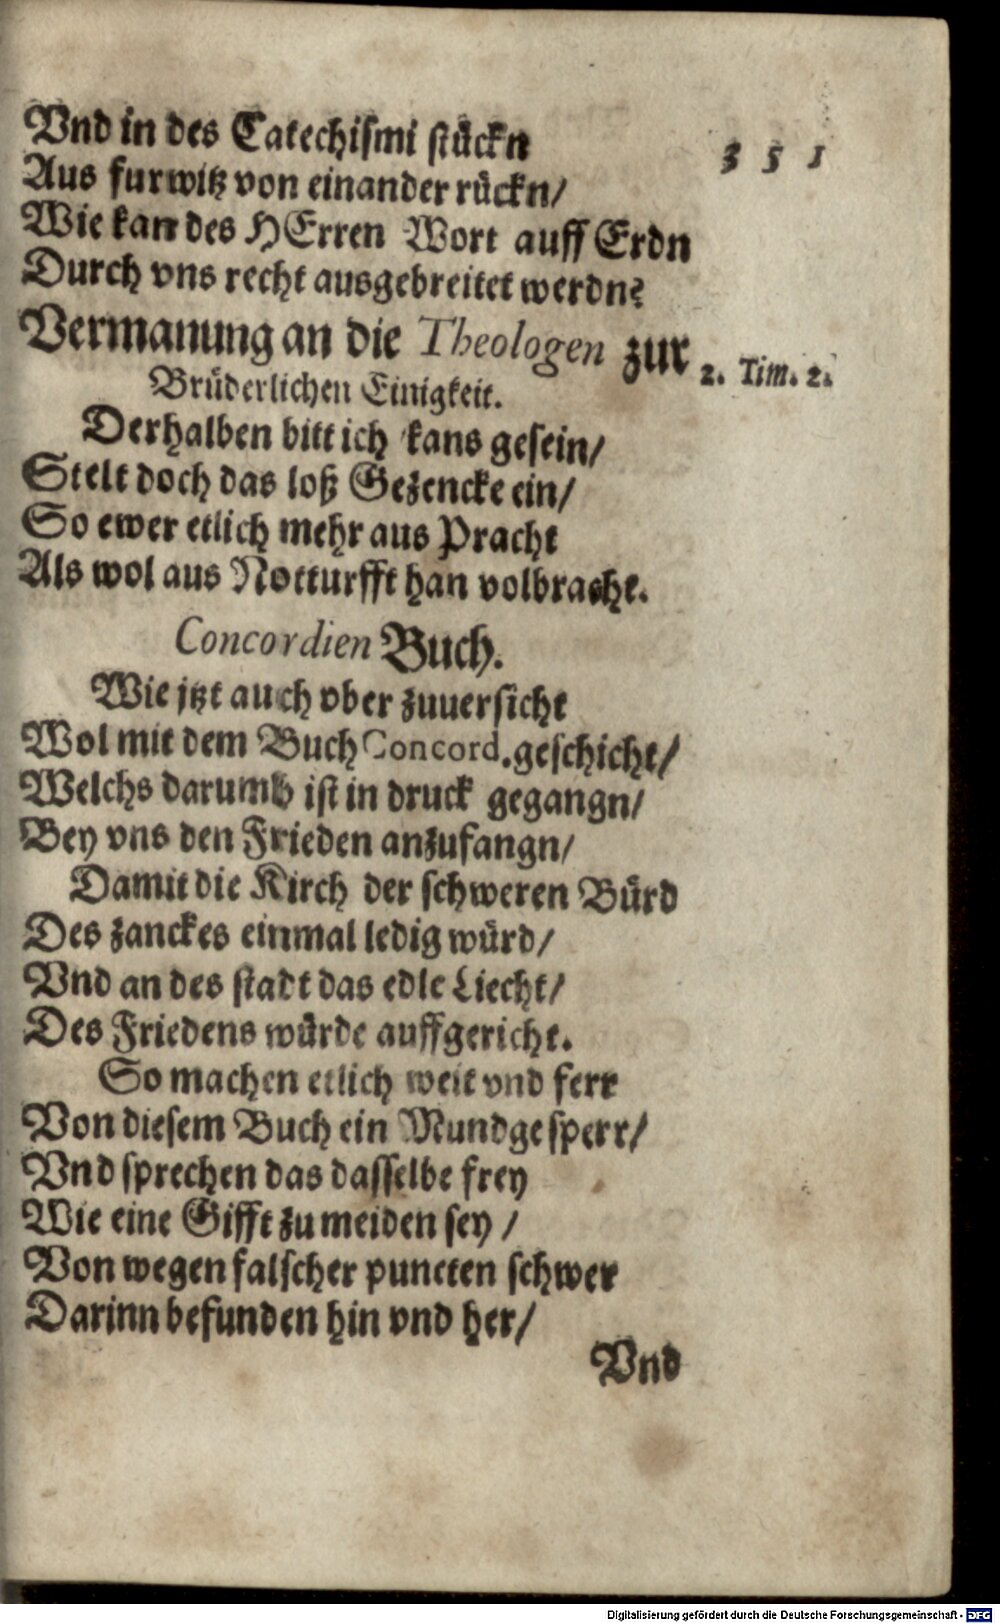 351
Vnd in des Catechismi stückn
Aus furwitz von einander rückn/
Wie kan des HErren Wort auff Erdn
Durch vns recht ausgebreitet werdn?
Vermanung an die Theologen zur
2. Tim. 2.
Brüderlichen Einigkeit.
Derhalben bitt ich kans gesein/
Stelt doch das loß Gezencke ein/
So ewer etlich mehr aus Pracht
Als wol aus Notturfft han volbracht.
Concordien Buch.
Wie jtzt auch vber zuuersicht
Wol mit dem Buch Concord. geschicht/
Welchs darumb ist in druck gegangn/
Bey vns den Frieden anzufangn/
Damit die Kirch der schweren Bürd
Des zanckes einmal ledig würd/
Vnd an des stadt das edle Liecht/
Des Friedens würde auffgericht.
So machen etlich weit vnd ferr
Von diesem Buch ein Mundgesperr/
Vnd sprechen das dasselbe frey
Wie eine Gifft zu meiden sey /
Von wegen falscher puncten schwer
Darinn befunden hin vnd her/
Vnd
Digitalisierung gefördert durch die Deutsche Forschungsgemeinschaft - DFG